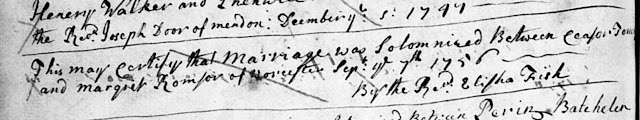 Henery Walker and
the Revd. Joseph Door of mendon: Decembr. ye. 5: 1744
This may Certify that Marriage was Solomnized Between Ceasor
and margret Romsor of worcester Sept. ye. 7th. 1756
By the Revd. Elisha Fish
Between Perin Batcheler